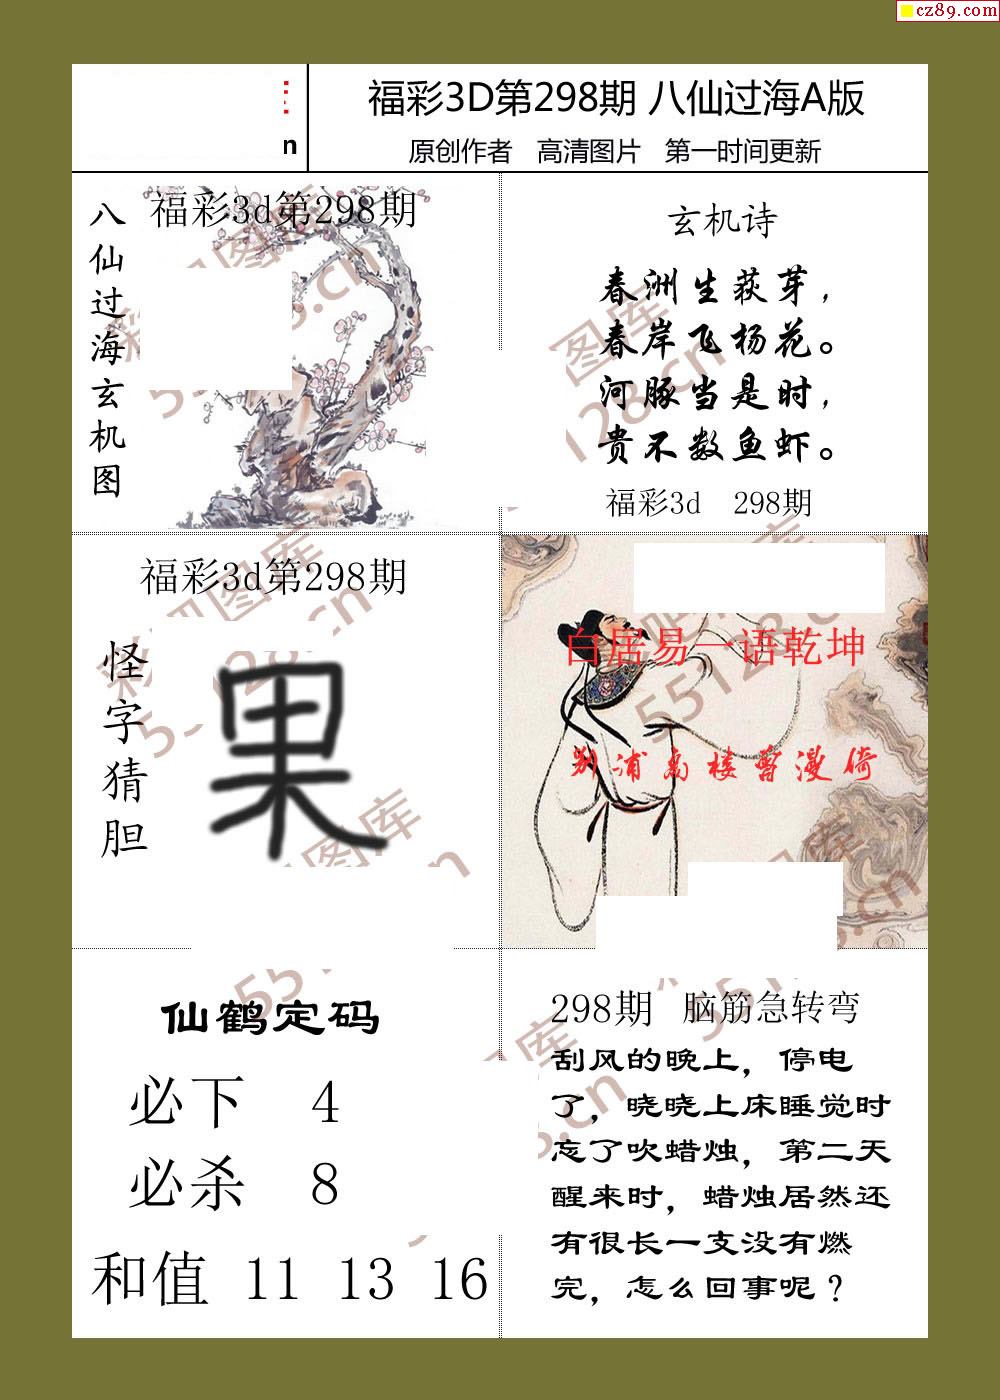 cz89.com
n
福彩3D第298期 八仙过海A版
原创作者 高清图片 第一时间更新
八仙过海玄机图
福彩3d第298期
玄机诗
春洲生荻芽，
春岸飞杨花。
河豚当是时，
贵不数鱼虾。
福彩3d 298期
福彩3d第298期
怪字猜胆
白居易一语乾坤
别浦高楼曾漫倚
仙鹤定码
必下 4
必杀 8
和值 11 13 16
298期 脑筋急转弯
刮风的晚上，停电
了，晓晓上床睡觉时
忘了吹蜡烛，第二天
醒来时，蜡烛居然还
有很长一支没有燃
完，怎么回事呢？